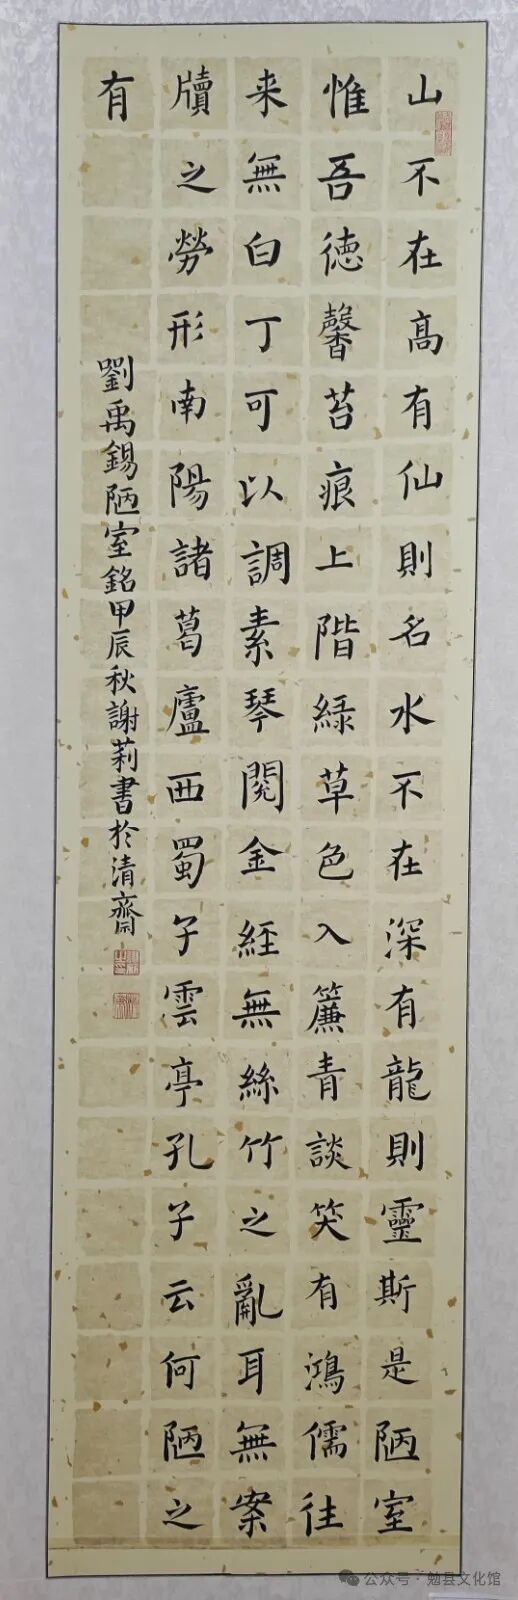 山不在高有仙則名水不在深有龍則靈斯是陋室
惟吾徳馨苔痕上階緑草色入簾青談笑有鴻儒往
来無白丁可以調素琴閲金經無絲竹之亂耳無案
牘之勞形南陽諸葛廬西蜀子雲亭孔子云何陋之
有
劉禹錫陋室銘甲辰秋謝莉書於清齋
公众号·勉县文化馆